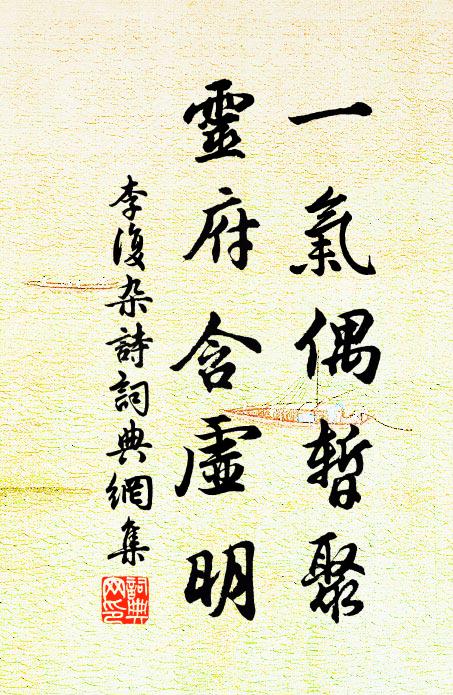 一氣偶暫聚
靈府含虛明
李復杂詩詞典網集
詞典網印